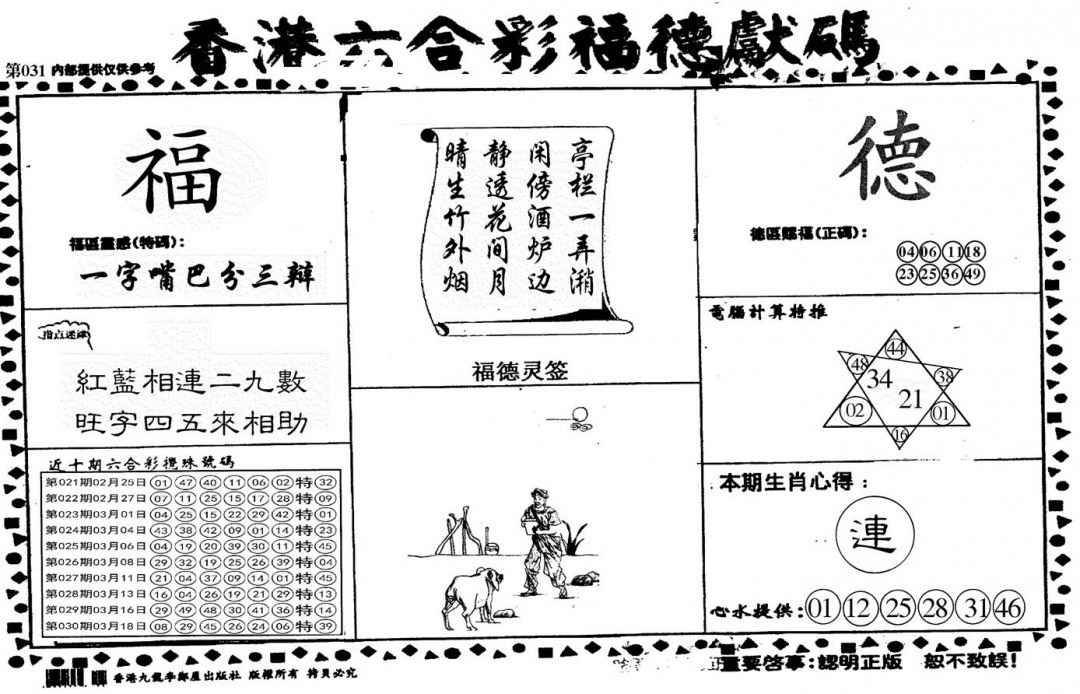 香港六合彩福德獻碼
第031 内部提供仅供参考
福
福區靈感(特碼):
一字嘴巴分三辩
指点迷津
紅藍相連二九數
旺字四五來相助
近十期六合彩攪珠號碼
第021期02月25日 01 47 40 11 06 02 特 32
第022期02月27日 07 11 25 15 17 28 特 09
第023期03月01日 04 25 15 22 29 42 特 01
第024期03月04日 43 38 42 09 01 14 特 23
第025期03月06日 04 19 20 39 30 11 特 45
第026期03月08日 29 32 19 25 26 39 特 04
第027期03月11日 21 04 37 09 14 01 特 45
第028期03月13日 16 04 26 19 21 29 特 13
第029期03月16日 29 49 48 30 41 36 特 14
第030期03月18日 08 29 45 26 24 06 特 39
亭栏一弄潲
闲傍酒炉边
静透花间月
晴生竹外烟
福德灵签
德
德區賜福(正碼):
04 06 11 18
23 25 36 49
電腦計算特推
44
48 38
34
21
02 01
16
本期生肖心得:
連
心水提供: 01 12 25 28 31 46
香港九龍李鄭屋出版社 版權所有 拷貝必究
重要啓事:認明正版 恕不致誤!